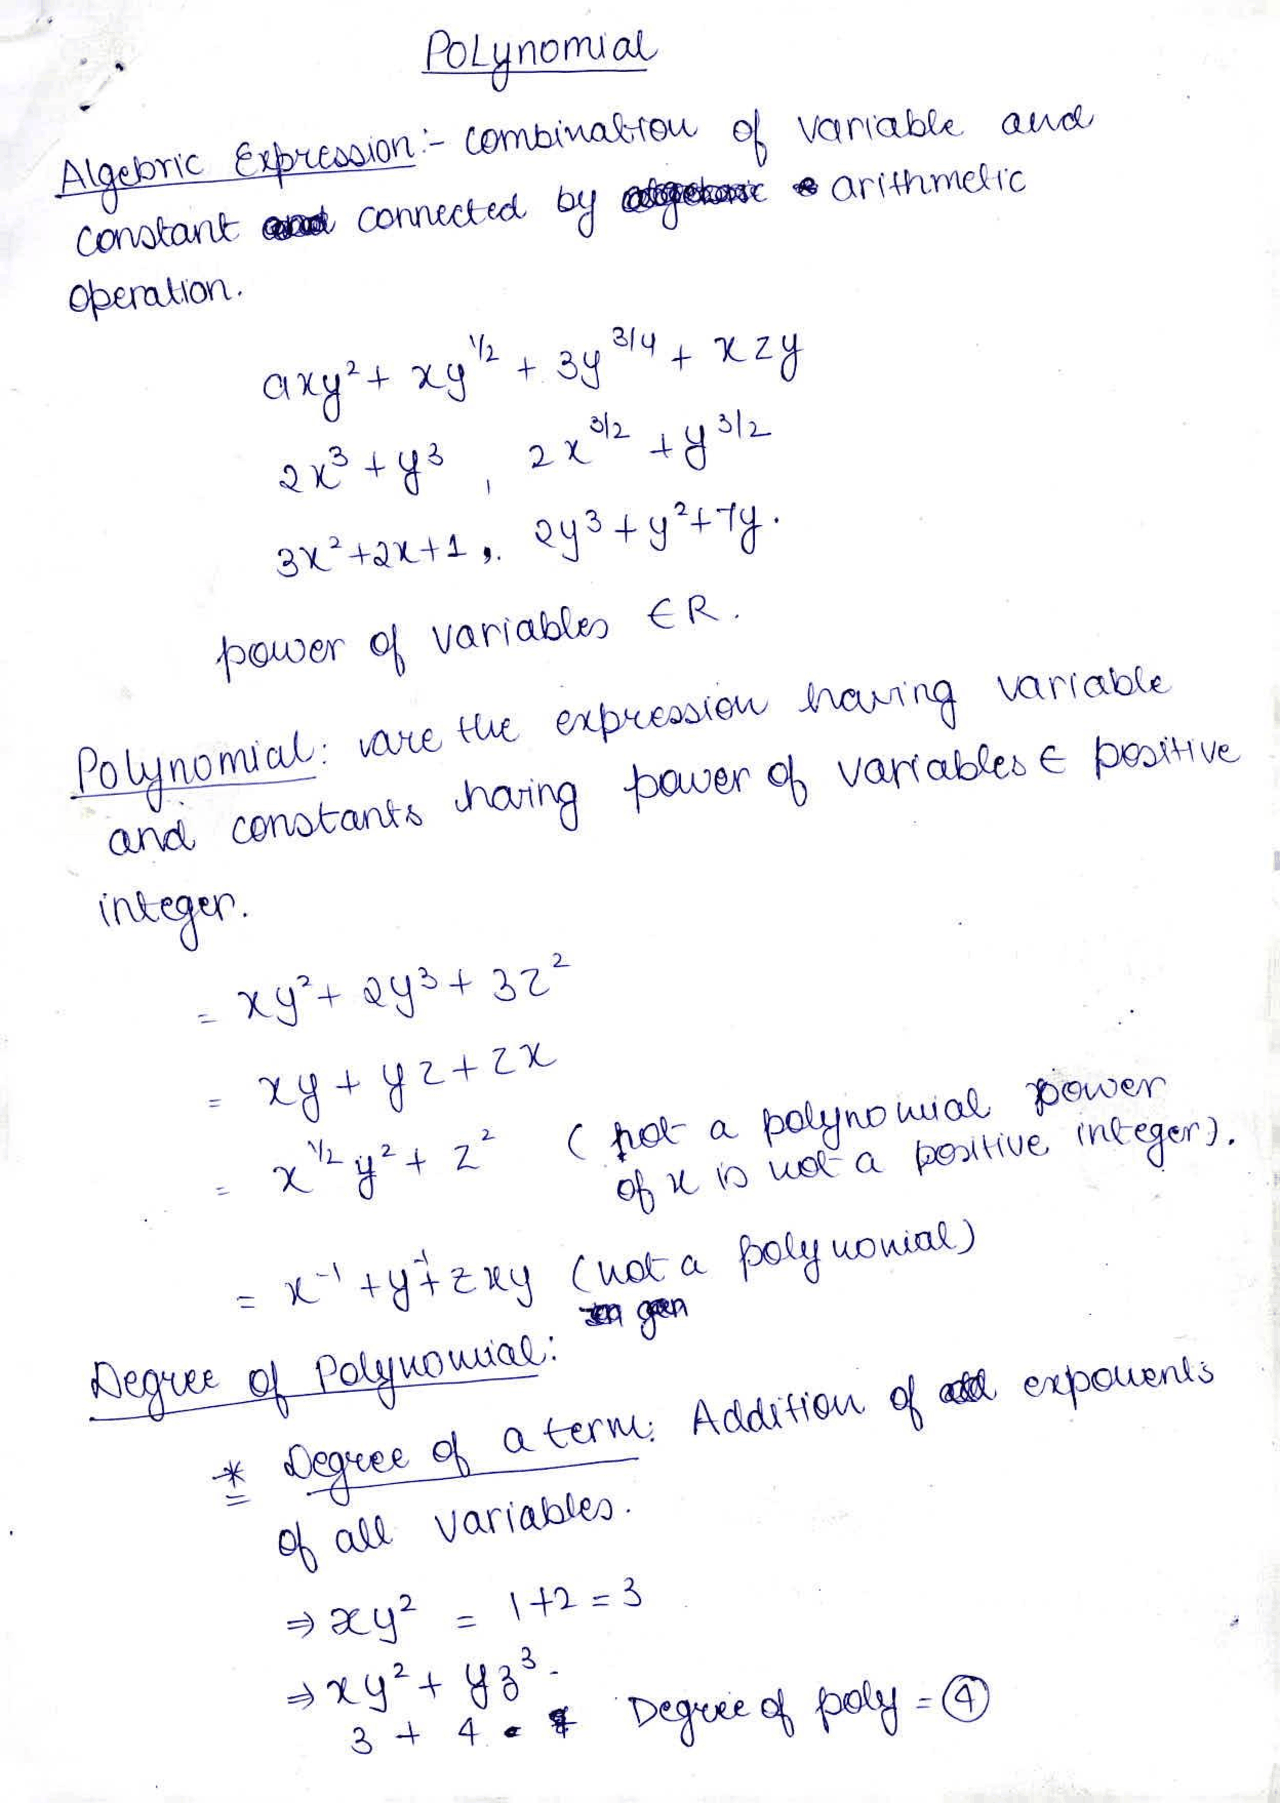 Polynomial
Algebric Expression:- combination of variable and
constant connected by arithmetic
operation.
axy² + xy^1/2 + 3y^3/4 + xzy
2x³ + y³ , 2x^3/2 + y^3/2
3x²+2x+1 , 2y³ + y²+7y.
power of variables ∈ R.
Polynomial: are the expression having variable
and constants having power of variables ∈ positive
integer.
= xy² + 2y³ + 3z²
= xy + yz + zx
= x^1/2 y² + z² ( not a polynomial power
of x is not a positive integer).
= x⁻¹ + y⁻¹ + zxy (not a polynomial)
Degree of Polynomial:
* Degree of a term: Addition of exponents
of all variables.
⇒ xy² = 1+2 = 3
⇒ xy² + yz³.
3 + 4 Degree of poly = ④